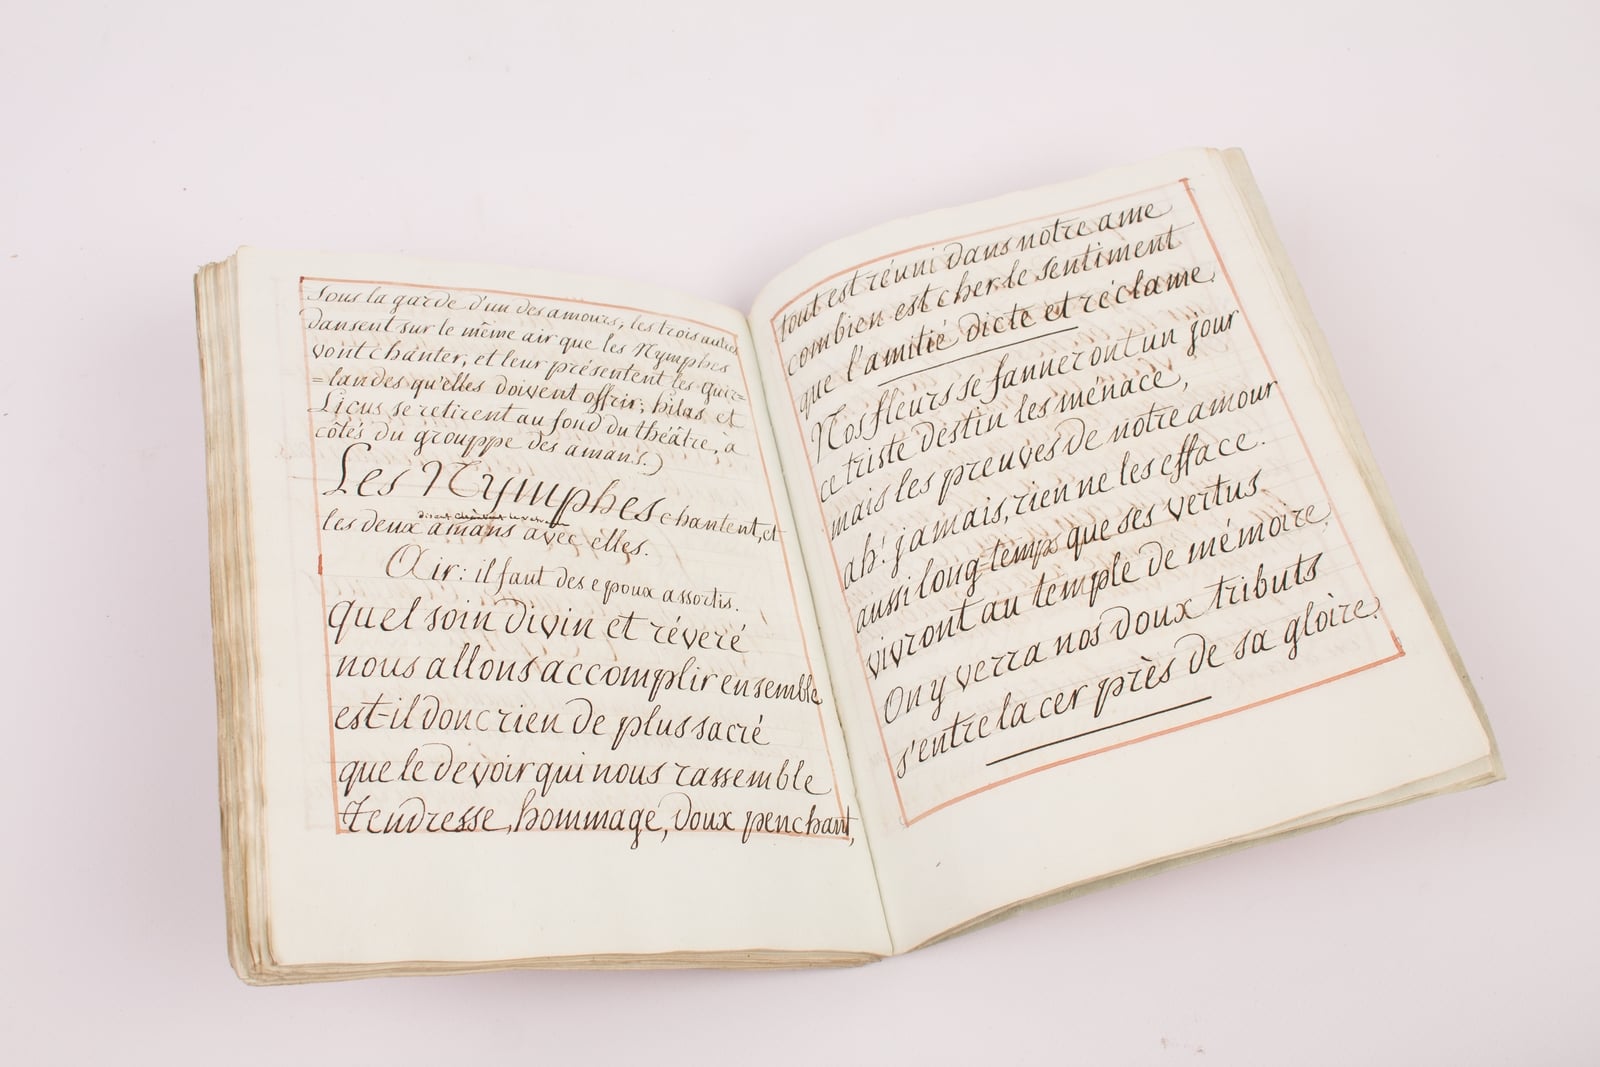 sous la garde d'un des amours, les trois autres
dansent sur le même air que les Nymphes
vont chanter, et leur présentent les guir=
=landes qu'elles doivent offrir; hilas et
Licus se retirent au fond du théâtre, à
côtés du grouppe des amans.)
Les Nymphes chantent, et
les deux amans avec elles.
Air: il faut des epoux assortis.
quel soin divin et révéré
nous allons accomplir ensemble
est-il donc rien de plus sacré
que le devoir qui nous rassemble
tendresse, hommage, doux penchant,
tout est réuni dans notre ame
combien est cher le sentiment
que l'amitié dicte et réclame.
Nos fleurs se fanneront un jour
ce triste destin les ménace,
mais les preuves de notre amour
ah! jamais, rien ne les efface.
aussi long-temps que ses vertus
vivront au temple de mémoire,
On y verra nos doux tributs
s'entrelacer près de sa gloire.